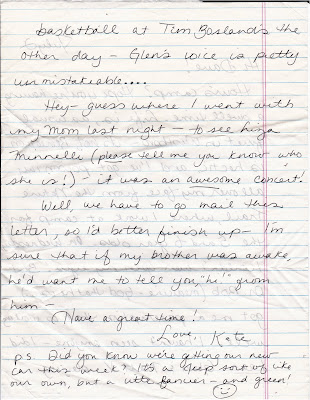 basketball at Tim Gosland's the
other day - Glen's voice is pretty
unmistakeable....
Hey - guess where I went with
my Mom last night - to see Liza
Minnelli (please tell me you know who
she is!) - it was an awesome concert!
Well, we have to go mail this
letter, so I'd better finish up - I'm
sure that if my brother was awake,
he'd want me to tell you "hi" from
him -
Have a great time!
Love, Kate
p.s. Did you know we're getting our new
car this week? It's a jeep sort of like
our own, but a little fancier - and green!